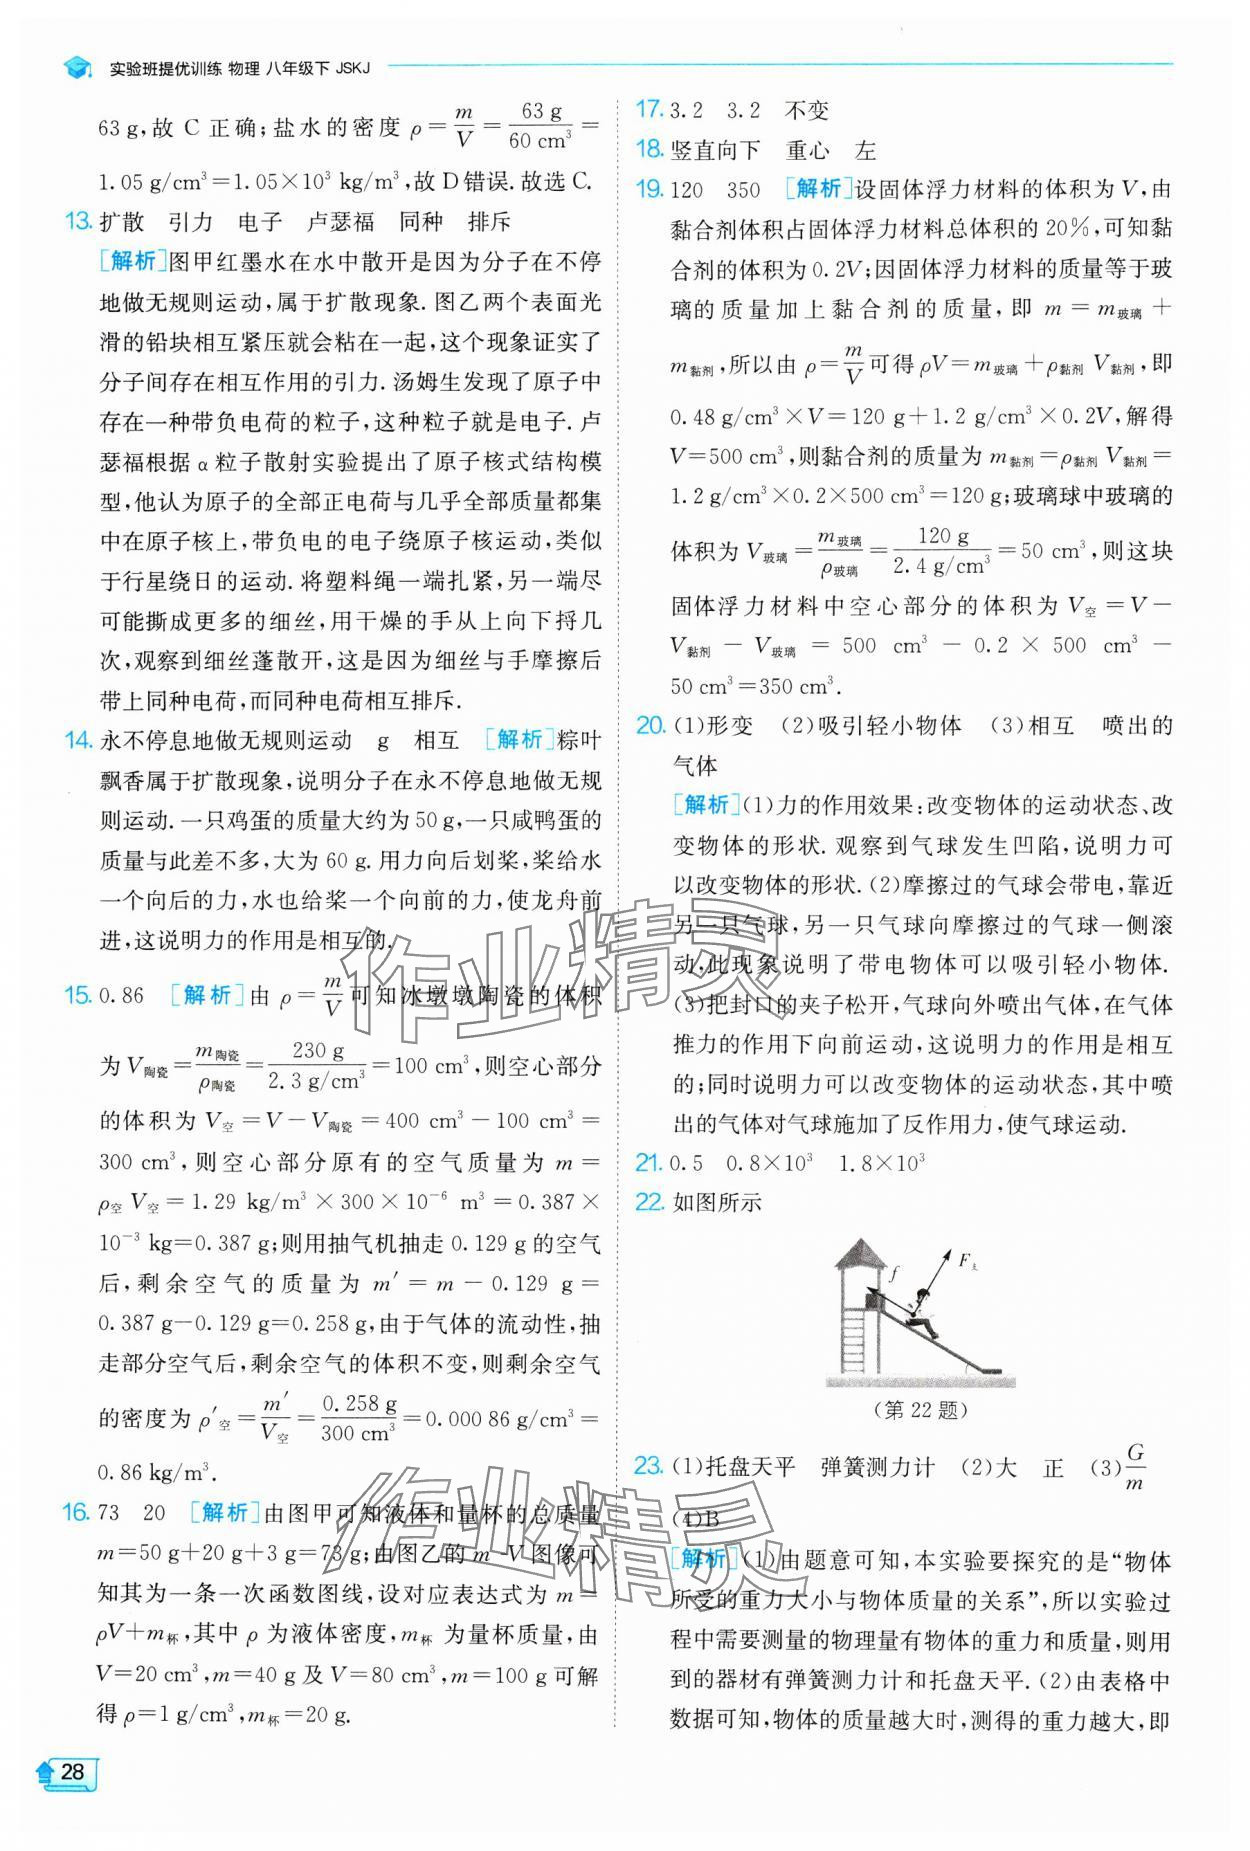 实验班提优训练 物理 八年级下 JSKJ
63 g,故 C 正确;盐水的密度 ρ=m/V=63 g/60 cm³=
1.05 g/cm³=1.05×10³ kg/m³,故 D 错误.故选 C.
13. 扩散 引力 电子 卢瑟福 同种 排斥
[解析]图甲红墨水在水中散开是因为分子在不停
地做无规则运动,属于扩散现象.图乙两个表面光
滑的铅块相互紧压就会粘在一起,这个现象证实了
分子间存在相互作用的引力.汤姆生发现了原子中
存在一种带负电荷的粒子,这种粒子就是电子.卢
瑟福根据 α 粒子散射实验提出了原子核式结构模
型,他认为原子的全部正电荷与几乎全部质量都集
中在原子核上,带负电的电子绕原子核运动,类似
于行星绕日的运动.将塑料绳一端扎紧,另一端尽
可能撕成更多的细丝,用干燥的手从上向下捋几
次,观察到细丝蓬散开,这是因为细丝与手摩擦后
带上同种电荷,而同种电荷相互排斥.
14. 永不停息地做无规则运动 g 相互 [解析]粽叶
飘香属于扩散现象,说明分子在永不停息地做无规
则运动.一只鸡蛋的质量大约为 50 g,一只咸鸭蛋的
质量与此差不多,大为 60 g.用力向后划桨,桨给水
一个向后的力,水也给桨一个向前的力,使龙舟前
进,这说明力的作用是相互的.
15. 0.86 [解析]由 ρ=m/V可知冰墩墩陶瓷的体积
为 V陶瓷=m陶瓷/ρ陶瓷=230 g/2.3 g/cm³=100 cm³,则空心部分
的体积为 V空=V-V陶瓷=400 cm³-100 cm³=
300 cm³,则空心部分原有的空气质量为 m=
ρ空 V空=1.29 kg/m³×300×10⁻⁶ m³=0.387×
10⁻³ kg=0.387 g;则用抽气机抽走 0.129 g 的空气
后,剩余空气的质量为 m′=m-0.129 g=
0.387 g-0.129 g=0.258 g,由于气体的流动性,抽
走部分空气后,剩余空气的体积不变,则剩余空气
的密度为 ρ′空=m′/V空=0.258 g/300 cm³=0.000 86 g/cm³=
0.86 kg/m³.
16. 73 20 [解析]由图甲可知液体和量杯的总质量
m=50 g+20 g+3 g=73 g;由图乙的 m-V 图像可
知其为一条一次函数图线,设对应表达式为 m=
ρV+m杯,其中 ρ 为液体密度,m杯 为量杯质量,由
V=20 cm³,m=40 g 及 V=80 cm³,m=100 g 可解
得 ρ=1 g/cm³,m杯=20 g.
28
17. 3.2 3.2 不变
18. 竖直向下 重心 左
19. 120 350 [解析]设固体浮力材料的体积为 V,由
黏合剂体积占固体浮力材料总体积的 20%,可知黏
合剂的体积为 0.2V;因固体浮力材料的质量等于玻
璃的质量加上黏合剂的质量,即 m=m玻璃+
m黏剂,所以由 ρ=m/V可得 ρV=m玻璃+ρ黏剂 V黏剂,即
0.48 g/cm³×V=120 g+1.2 g/cm³×0.2V,解得
V=500 cm³,则黏合剂的质量为 m黏剂=ρ黏剂 V黏剂=
1.2 g/cm³×0.2×500 cm³=120 g;玻璃球中玻璃的
体积为 V玻璃=m玻璃/ρ玻璃=120 g/2.4 g/cm³=50 cm³,则这块
固体浮力材料中空心部分的体积为 V空=V-
V黏剂-V玻璃=500 cm³-0.2×500 cm³-
50 cm³=350 cm³.
20. (1)形变 (2)吸引轻小物体 (3)相互 喷出的
气体
[解析](1)力的作用效果:改变物体的运动状态、改
变物体的形状.观察到气球发生凹陷,说明力可
以改变物体的形状.(2)摩擦过的气球会带电,靠近
另一只气球,另一只气球向摩擦过的气球一侧滚
动,此现象说明了带电物体可以吸引轻小物体.
(3)把封口的夹子松开,气球向外喷出气体,在气体
推力的作用下向前运动,这说明力的作用是相互
的;同时说明力可以改变物体的运动状态,其中喷
出的气体对气球施加了反作用力,使气球运动.
21. 0.5 0.8×10³ 1.8×10³
22. 如图所示
f F支
(第 22 题)
23. (1)托盘天平 弹簧测力计 (2)大 正 (3)G/m
(4)B
[解析](1)由题意可知,本实验要探究的是“物体
所受的重力大小与物体质量的关系”,所以实验过
程中需要测量的物理量有物体的重力和质量,则用
到的器材有弹簧测力计和托盘天平.(2)由表格中
数据可知,物体的质量越大时,测得的重力越大,即
作业精灵
作业精灵